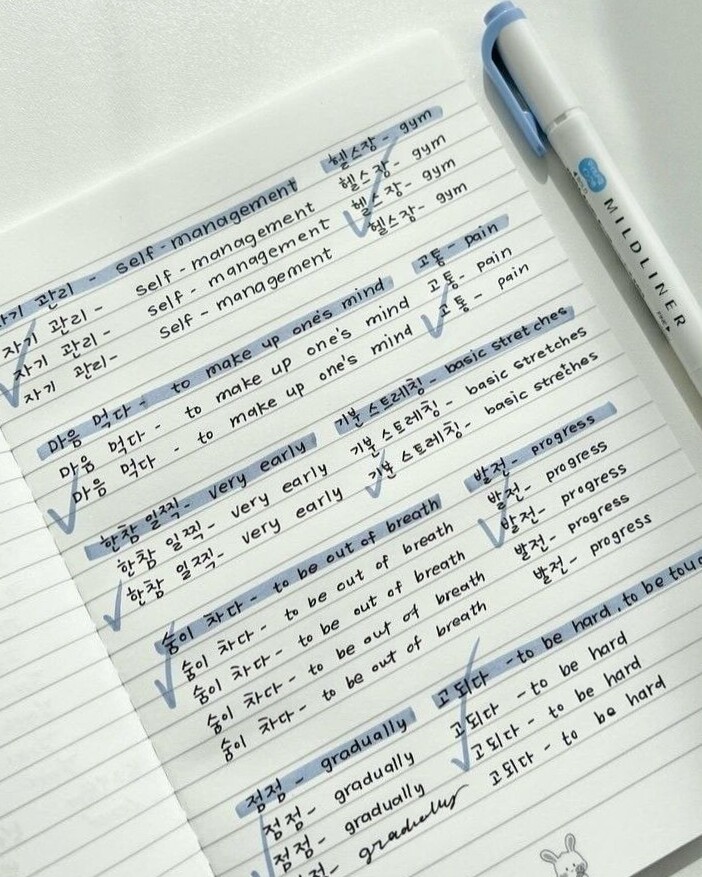 자기 관리 - self-management
자기 관리 - self-management
자기 관리 - self-management
자기 관리- self-management
헬스장- gym
헬스장- gym
헬스장- gym
헬스장- gym
마음 먹다 - to make up one's mind
마음 먹다 - to make up one's mind
마음 먹다 - to make up one's mind
고통- pain
고통- pain
고통- pain
한참 일찍- very early
한참 일찍- very early
한참 일찍- very early
기본 스트레칭- basic stretches
기본 스트레칭- basic stretches
기본 스트레칭- basic stretches
숨이 차다- to be out of breath
숨이 차다- to be out of breath
숨이 차다- to be out of breath
숨이 차다- to be out of breath
숨이 차다- to be out of breath
발전- progress
발전- progress
발전- progress
발전- progress
발전- progress
점점- gradually
점점- gradually
점점- gradually
gradually
고되다 -to be hard, to be
고되다 -to be hard
고되다 - to be hard
고되다 - to be hard
MILDLINER